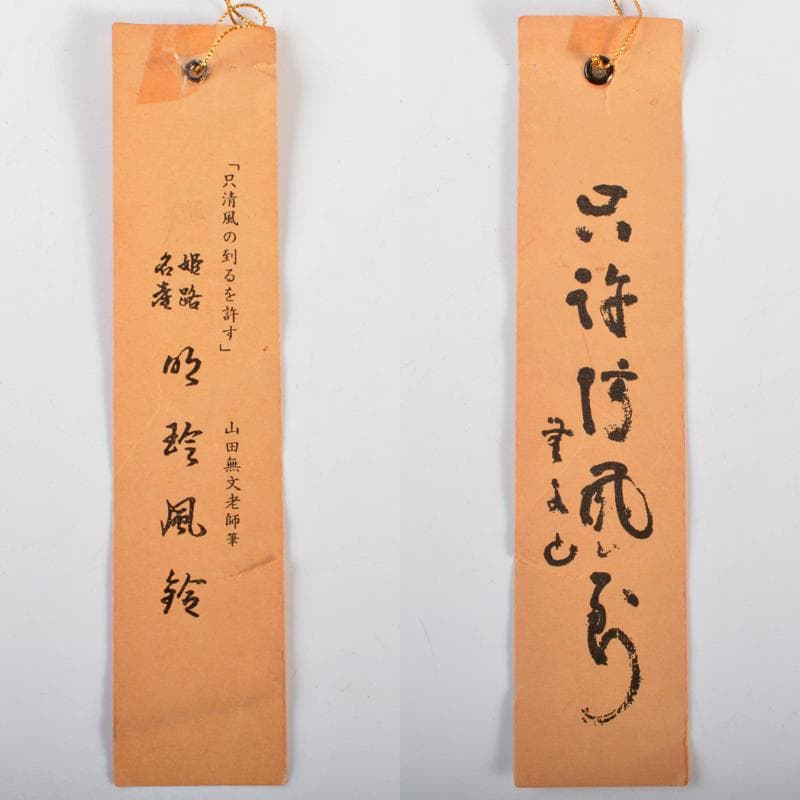 「只清風の到るを許す」
山田無文老師筆
姫路
名産
明玲風鈴
只許清風到
無文